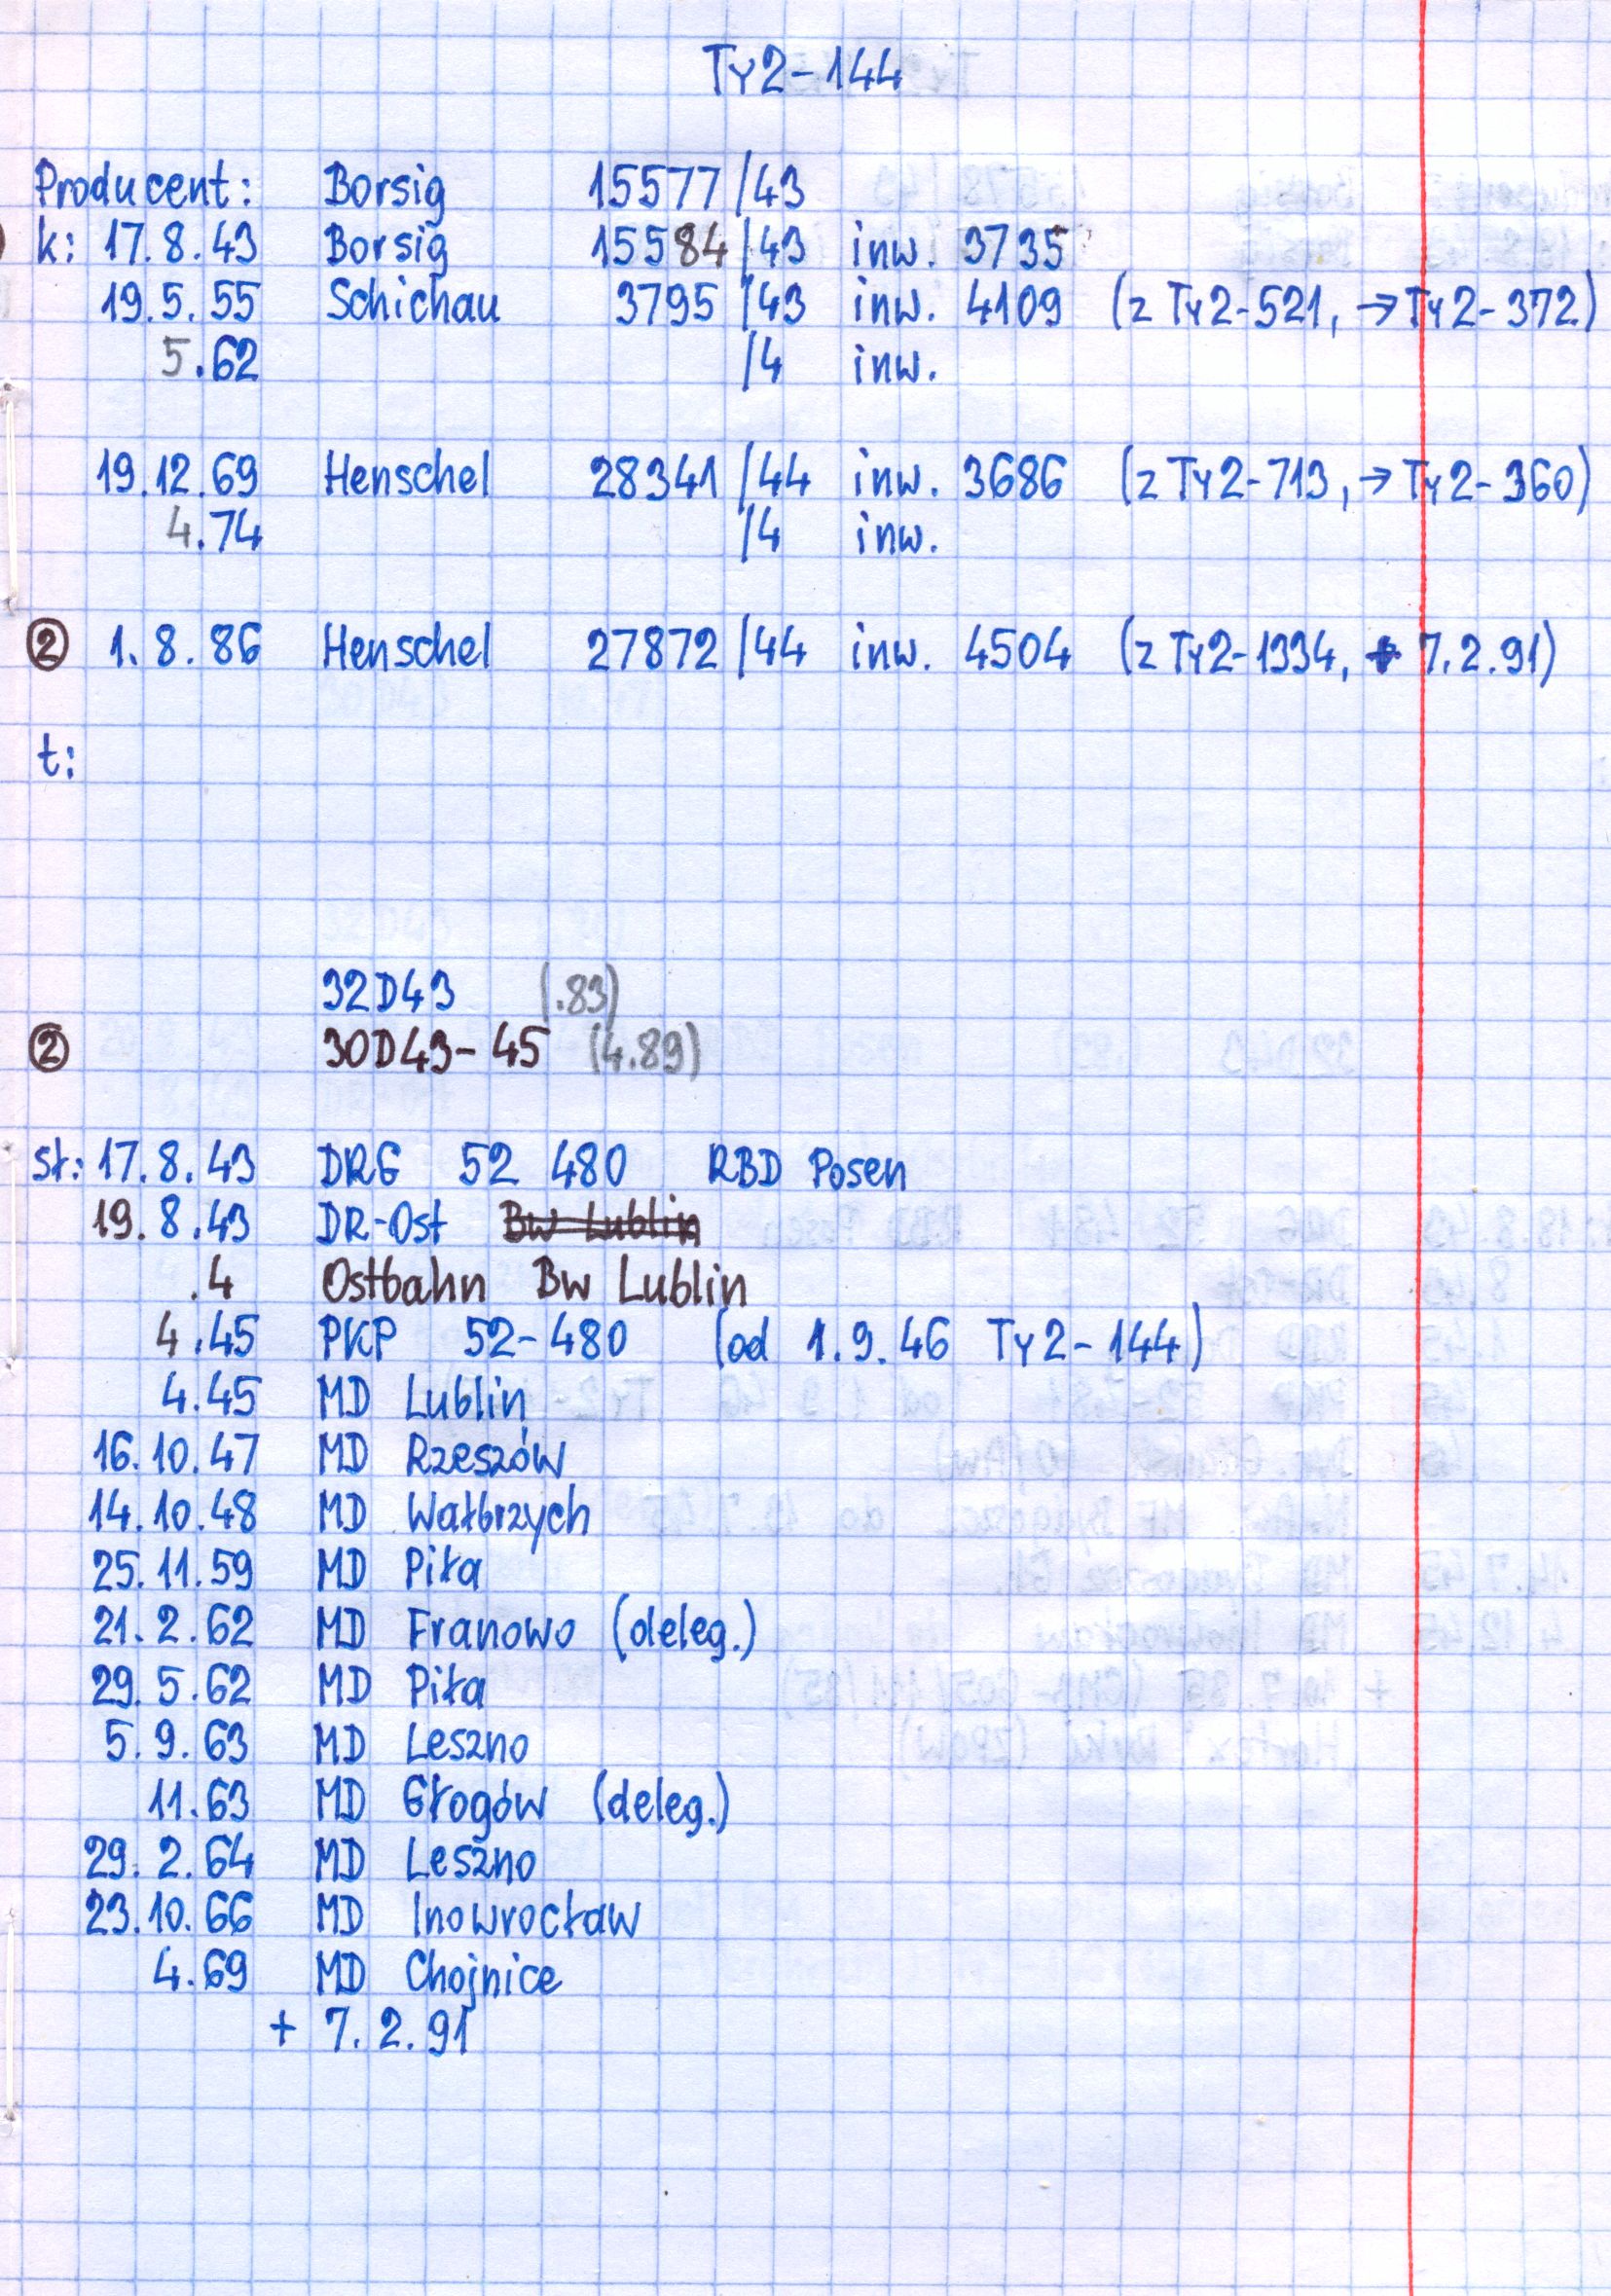 Ty2-144
Producent: Borsig 15577/43
k: 17.8.43 Borsig 15584/43 inw. 3735
19.5.55 Schichau 3795/43 inw. 4109 (z Ty2-521, → Ty2-372)
5.62 /4 inw.
19.12.69 Henschel 28341/44 inw. 3686 (z Ty2-713, → Ty2-360)
4.74 /4 inw.
② 1.8.86 Henschel 27872/44 inw. 4504 (z Ty2-1334, + 7.2.91)
t:
32D43 (.83)
② 30D43-45 (4.89)
st: 17.8.43 DRG 52 480 RBD Posen
19.8.43 DR-Ost Bw Lublin
.4 Ostbahn Bw Lublin
4.45 PKP 52-480 (od 1.9.46 Ty2-144)
4.45 MD Lublin
16.10.47 MD Rzeszów
14.10.48 MD Wałbrzych
25.11.59 MD Piła
21.2.62 MD Franowo (deleg.)
29.5.62 MD Piła
5.9.63 MD Leszno
11.63 MD Głogów (deleg.)
29.2.64 MD Leszno
23.10.66 MD Inowrocław
4.69 MD Chojnice
+ 7.2.91